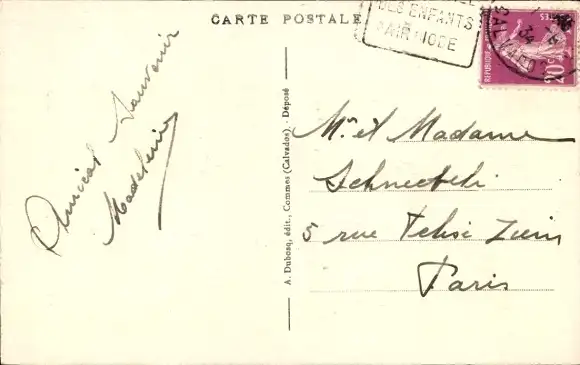 CARTE POSTALE
DES ENFANTS
AIR IODÉ
CALVADOS
34
REPUBLIQUE
20c
Amical Souvenir
Madeleine
A. Dubosq, édit., Commes (Calvados). - Déposé
Mr. et Madame
5 rue
Paris